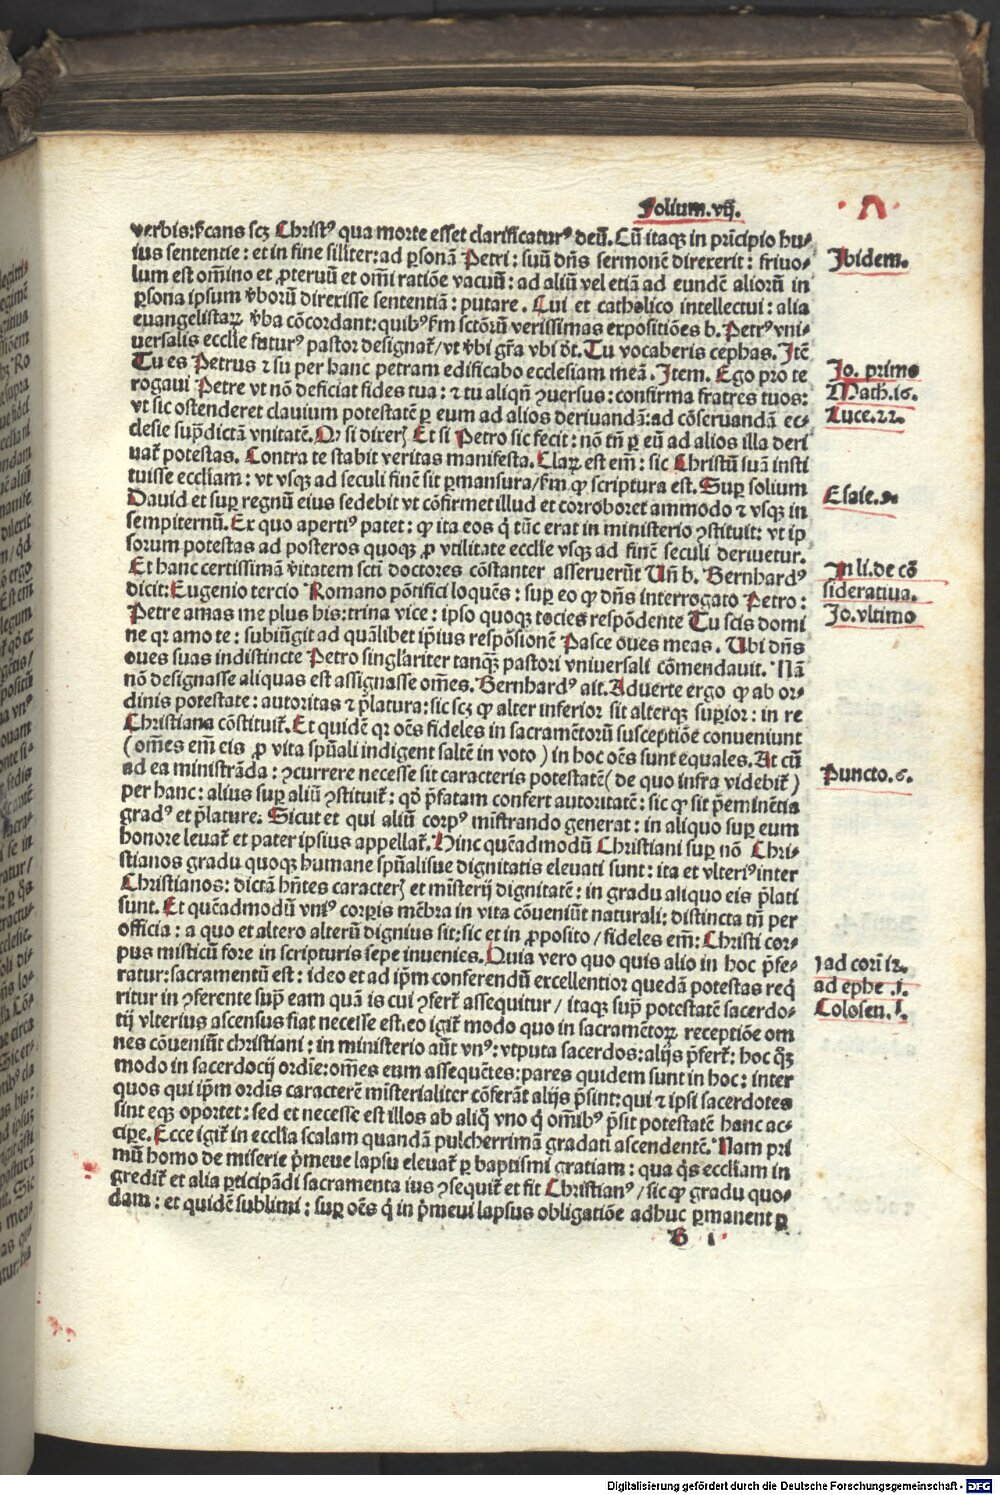 Folium.vij.
verbis: sc̃ans scꝫ Christꝰ qua morte esset clarificaturꝰ deũ. Cũ itaqꝫ in prīcipio hu⸗
ius sententie: et in fine siliter: ad ꝑsonā Petri: suũ dñs sermonē direxerit: friuo⸗
lum est oīno et ꝓteruũ et omī ratiōe vacuũ: ad aliũ vel etiā ad eundē aliorũ in
ꝑsona ipsum v̓borũ direxisse sententiā: putare. Cui et catholico intellectui: alia
euangelistaꝝ v̓ba cōcordant: quibꝰ fm sctōrũ verissimas expositiōes b. Petrꝰ vni⸗
uersalis ecclīe futurꝰ pastor designat̃/ vt v̓bi grā vbi dr̃. Tu vocaberis cephas. Itē
Tu es Petrus ⁊ su per hanc petram edificabo ecclesiam meā. Item. Ego pro te
rogaui Petre vt nō deficiat fides tua: ⁊ tu aliqñ ꝯuersus: confirma fratres tuos:
vt sic ostenderet clauium potestatē ꝑ eum ad alios deriuandā: ad cōseruandā ec⸗
clesie supͥdictā vnitatē. Qꝫ si dixerꝫ Et si Petro sic fecit: nō tñ ꝑ eũ ad alios illa deri
uat̃ potestas. Contra te stabit veritas manifesta. Claꝝ est em̄: sic Christũ suā insti
tuisse eccliam: vt vsqꝫ ad seculi finē sit ꝑmansura/ fm ꝙ scriptura est. Suꝑ solium
Dauid et suꝑ regnũ eius sedebit vt cōfirmet illud et corroboret ammodo ⁊ vsqꝫ in
sempiternũ. Ex quo apertiꝰ patet: ꝙ ita eos q̇ tũc erat in ministerio ꝯstituit: vt ip
sorum potestas ad posteros quoqꝫ ꝓ vtilitate ecclīe vsqꝫ ad finē seculi deriuetur.
Et hanc certissimā v̓itatem sctī doctores cōstanter asseruerũt Uñ b. Bernhardꝰ
dicit: Eugenio tercio Romano pōtifici loquēs: suꝑ eo ꝙ dñs interrogato Petro:
Petre amas me plus his: trina vice: ipso quoqꝫ tocies respōdente Tu scis domi
ne qꝛ amo te: subiũgit ad quālibet ip̄ius respōsionē Pasce oues meas. Ubi dñs
oues suas indistincte Petro singl̃ariter tanqꝫ pastori vniuersali cōmendauit. Nā
nō designasse aliquas est assignasse om̄es. Bernhardꝰ ait. Aduerte ergo ꝙ ab or⸗
dinis potestate: autoritas ⁊ p̄latura: sic scꝫ ꝙ alter inferior sit alterqꝫ suꝑior: in re
Christiana cōstituit̃. Et quidē qꝛ oēs fideles in sacramētorũ susceptiōe conueniunt
(om̄es em̄ eis ꝓ vita spũali indigent saltē in voto) in hoc oēs sunt equales. At cũ
ad ea ministrāda: ꝯcurrere necesse sit caracteris potestatē (de quo infra videbit̃)
per hanc: alius suꝑ aliũ ꝯstituit̃: qꝺ p̄fatam confert autoritatē: sic ꝙ sit p̄eminētia
gradꝰ et p̄lature. Sicut et qui aliũ corpꝰ mīstrando generat: in aliquo suꝑ eum
honore leuat̃ et pater ipsius appellat̃. Hinc quēadmodũ Christiani suꝑ nō Chri⸗
stianos gradu quoqꝫ humane spũalisue dignitatis eleuati sunt: ita et vlteriꝰ inter
Christianos: dictā hñtes caracterꝫ et mīsterij dignitatē: in gradu aliquo eis p̄lati
sunt. Et quēadmodũ vniꝰ corꝑis mēbra in vita cōueniũt naturali: distincta tñ per
officia: a quo et altero alterũ dignius sit: sic et in ꝓposito/ fideles em̄: Christi cor⸗
pus misticũ fore in scripturis sepe inuenies. Quia vero quo quis alio in hoc p̄fe⸗
ratur: sacramentũ est: ideo et ad ip̄m conferendũ excellentior quedā potestas req̇
ritur in ꝯferente supͥ eam quā is cui ꝯfert̃ assequitur/ itaqꝫ supͥ potestatē sacerdo⸗
tij vlterius ascensus fiat necesse est. eo igit̃ modo quo in sacramētoꝝ receptiōe om
nes cōueniũt christiani: in ministerio aũt vnꝰ: vtputa sacerdos: alijs p̄fert̃: hoc q̃ꝫ
modo in sacerdocij ordīe: om̄es eum assequētes: pares quidem sunt in hoc: inter
quos qui ip̄m ordīs caracterē mīsterialiter cōferāt alijs p̄sint: qui ⁊ ipsi sacerdotes
sint eqꝫ oportet: sed et necesse est illos ab aliq̊ vno q̇ om̄ibꝰ p̄sit potestatē hanc ac⸗
ciꝑe. Ecce igit̃ in ecclīa scalam quandā pulcherrimā gradati ascendentē. Nam pri
mũ homo de miserie pͥmeue lapsu eleuat̃ ꝑ baptismi gratiam: qua q̇s eccliam in
gredit̃ et alia ꝑticipādi sacramenta ius ꝯsequit̃ et fit Christianꝰ/ sic ꝙ gradu quo⸗
dam: et quidē sublimi: suꝑ oēs q̇ in pͥmeui lapsus obligatiōe adhuc ꝑmanent ꝑ
B i
Ibidem.
Jo. primo
Math.16.
Luce.22.
Esaie.9
In li. de cō
sideratiua.
Jo. vltimo
Puncto.6.
1 ad corī 12.
ad ephe .1.
Colosen.1.
Digitalisierung gefördert durch die Deutsche Forschungsgemeinschaft - DFG